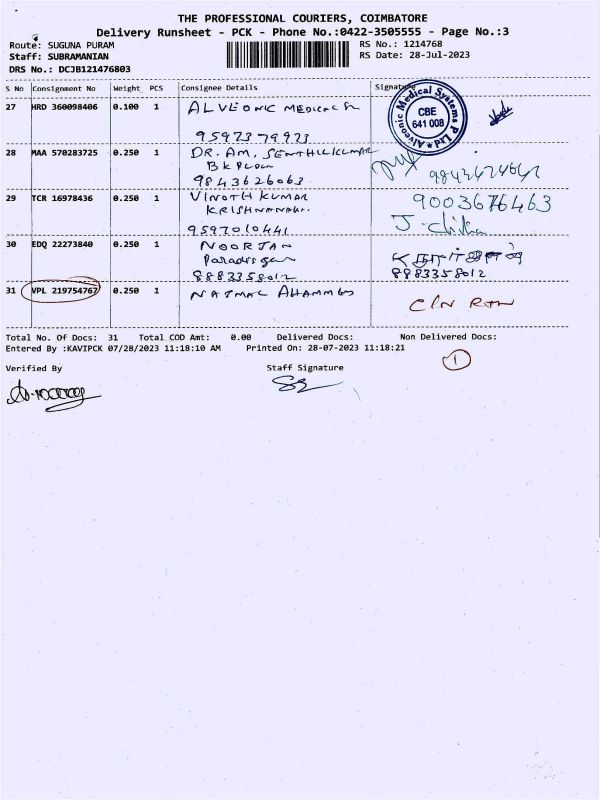 THE PROFESSIONAL COURIERS, COIMBATORE
Delivery Runsheet - PCK - Phone No.:0422-3505555 - Page No.:3
Route: SUGUNA PURAM RS No.: 1214768
Staff: SUBRAMANIAN RS Date: 28-Jul-2023
DRS No.: DCJB121476803
S No Consignment No Weight PCS Consignee Details Signature
27 HRD 360098406 0.100 1 ALVEONIC MEDICAL
9597379923
Alveonic Medical Systems P Ltd
CBE
641 008
28 MAA 570283725 0.250 1 DR. AM. SENTHILKUMAR
BK
9843626063
29 TCR 16978436 0.250 1 VINOTH KUMAR 9003676463
KRISHNA J.
9597010441
30 EDQ 22273840 0.250 1 NOORJAN
Paradise
8883358012 8883358012
31 VPL 219754767 0.250 1 AHAMMED
C/N
Total No. Of Docs: 31 Total COD Amt: 0.00 Delivered Docs: Non Delivered Docs:
Entered By :KAVIPCK 07/28/2023 11:18:10 AM Printed On: 28-07-2023 11:18:21
1
Verified By Staff Signature